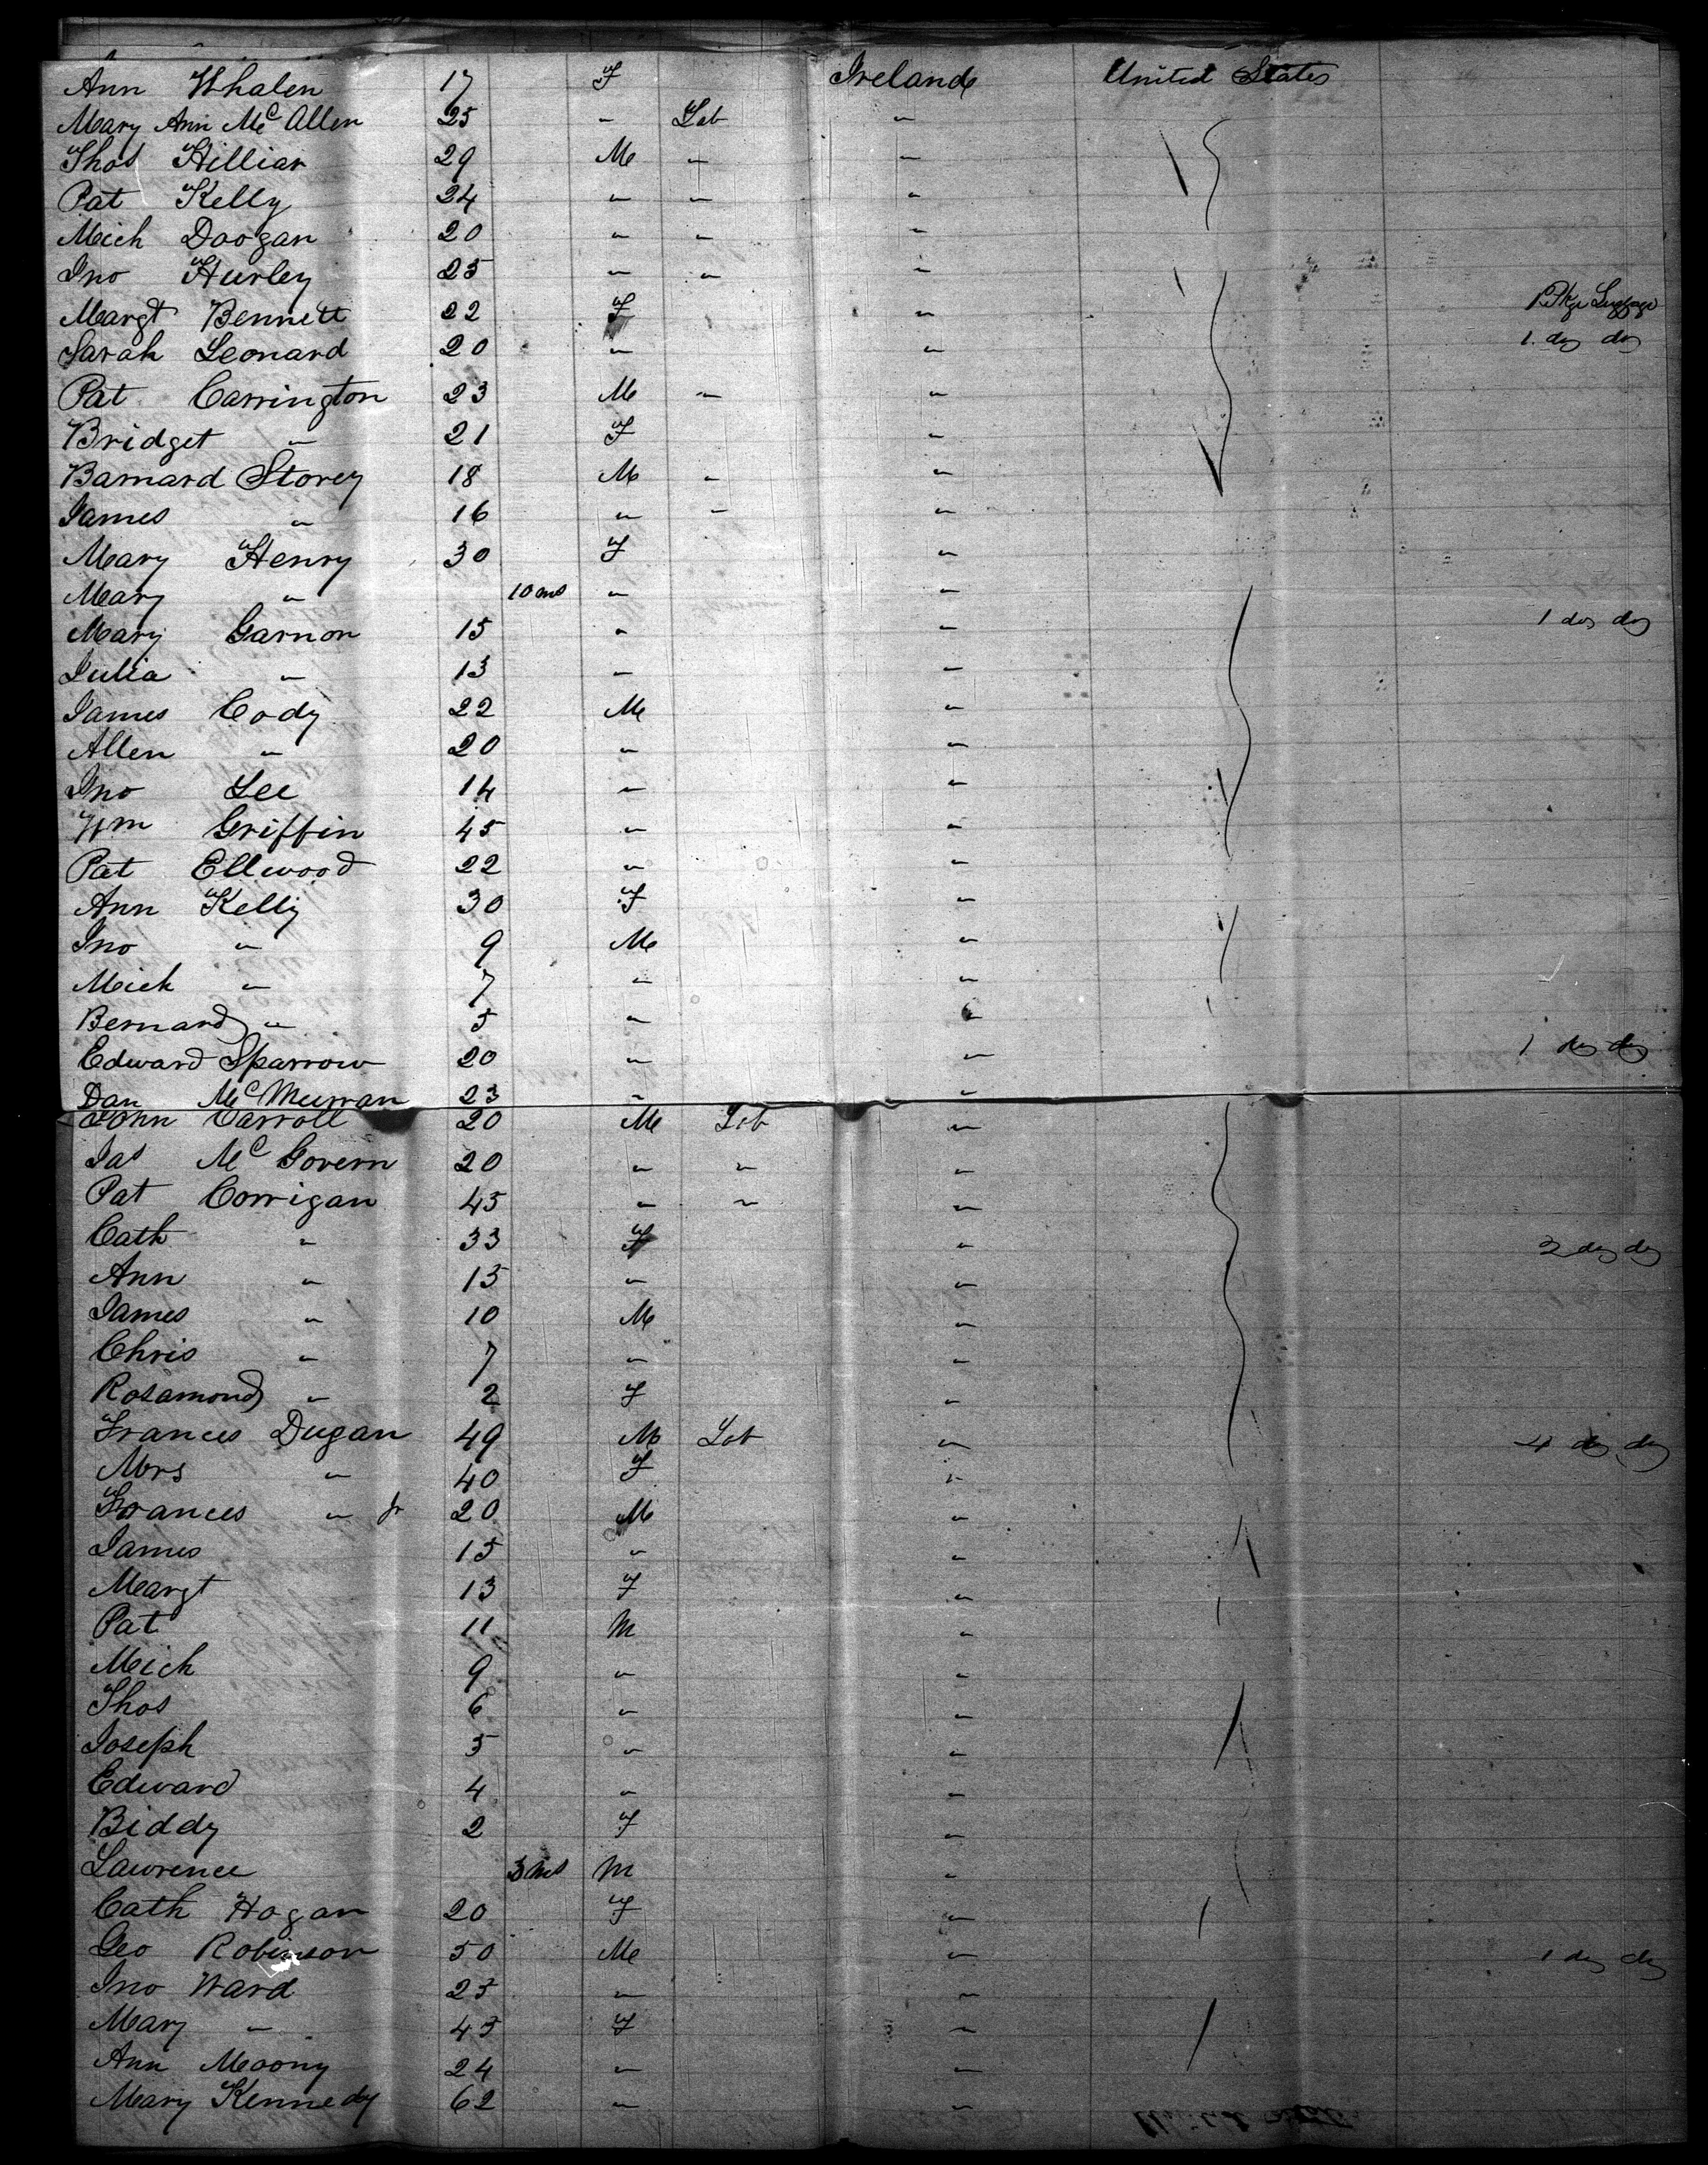 Ann Whalen 17 F Ireland United States
Mary Ann McAllen 25 " Lab "
Thos Hilliar 29 M " "
Pat Kelly 24 " " "
Mich Doogan 20 " " "
Jno Hurley 25 " " "
Margt Bennett 22 F " 1 Pkge Luggage
Sarah Leonard 20 " " 1 do do
Pat Carrington 23 M " "
Bridget " 21 F "
Barnard Storey 18 M " "
James " 16 " " "
Mary Henry 30 F "
Mary " 10 ms " "
Mary Garnon 15 " " 1 do do
Julia " 13 " "
James Cody 22 M "
Allen " 20 " "
Jno Lee 14 " "
Wm Griffin 45 " "
Pat Ellwood 22 " "
Ann Kelly 30 F "
Jno " 9 M "
Mich " 7 " "
Bernard " 5 " "
Edward Sparrow 20 " " 1 do do
Dan 23 " "
John Carroll 20 M Lab "
Jas McGovern 20 " " "
Pat Corrigan 45 " " "
Cath " 33 F " 2 do do
Ann " 15 " "
James " 10 M "
Chris " 7 " "
Rosamond " 2 F "
Frances Dugan 49 M Lab " 4 do do
Mrs " 40 F "
Frances " Jr 20 M "
James 15 " "
Margt 13 F "
Pat 11 M "
Mich 9 " "
Thos 6 " "
Joseph 5 " "
Edward 4 " "
Biddy 2 F "
Lawrence 3 ms M "
Cath Hogan 20 F "
Geo Robinson 50 M " 1 do do
Jno Ward 25 " "
Mary " 45 F "
Ann Moony 24 " "
Mary Kennedy 62 " "